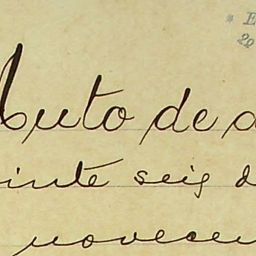 Auto de d
inte seis d
novecen